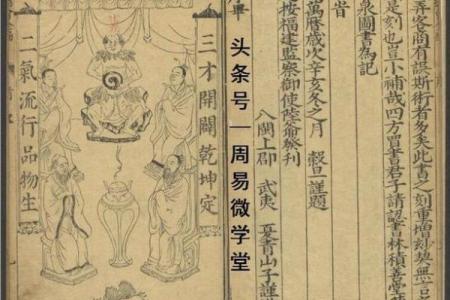 弄客商有誤斯術者多矣此書之刻重增刻
是刻也豈小補哉四方買書君子請認書林積善堂
泉圖書為記
旹
萬曆歲次辛亥冬之月 穀旦謹題
按福建監察御使陸爺 刊
八閩上郡 武夷 山子謹
头条号—周易微学堂
三才開闢乾坤定
二氣流行品物生